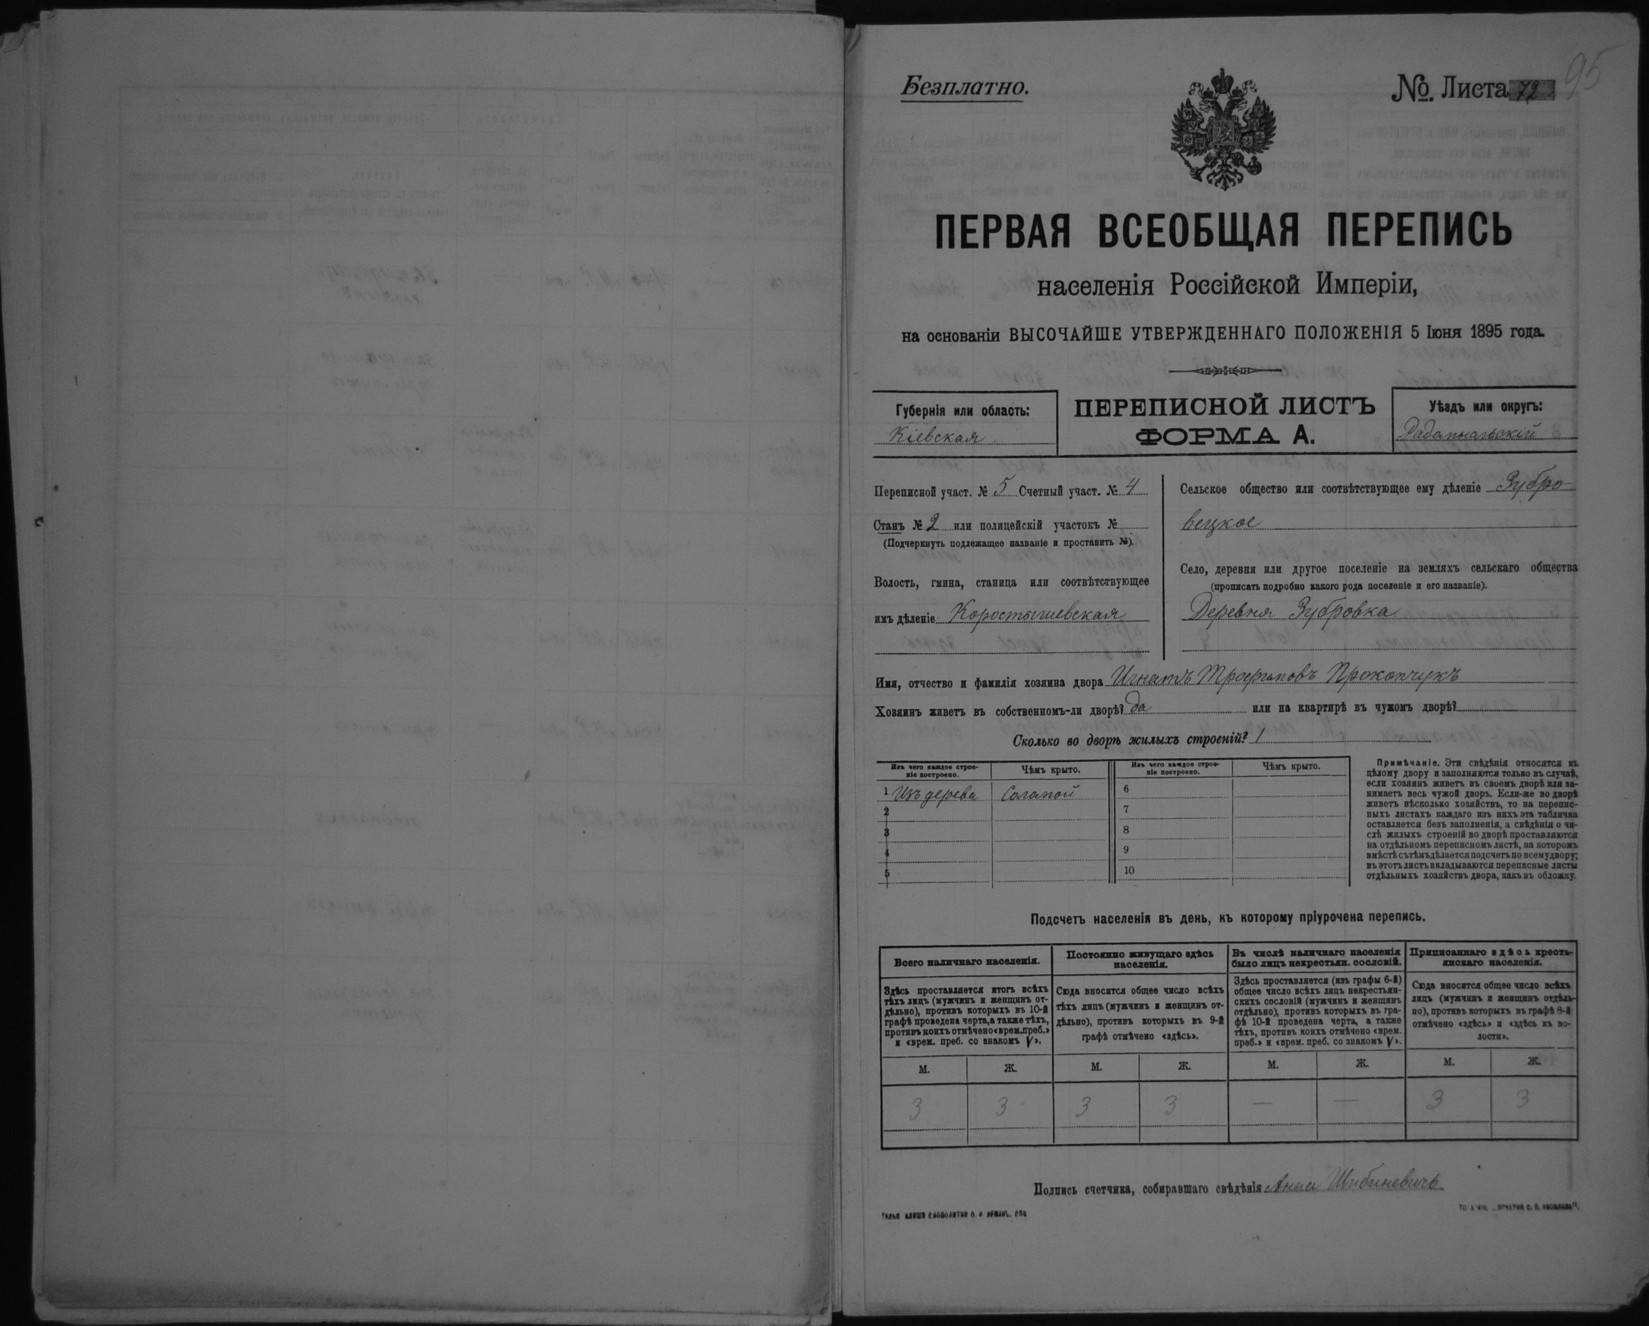 Безплатно.
№. Листа 72
95
ПЕРВАЯ ВСЕОБЩАЯ ПЕРЕПИСЬ
населенія Россійской Имперіи,
на основаніи ВЫСОЧАЙШЕ УТВЕРЖДЕННАГО ПОЛОЖЕНІЯ 5 Іюня 1895 года.
Губернія или область:
Кіевская
ПЕРЕПИСНОЙ ЛИСТЪ
ФОРМА А.
Уѣздъ или округъ:
Переписной участ. № 5 Счетный участ. № 4
Станъ № 2 или полицейскій участокъ №
(Подчеркнуть подлежащее названіе и проставить №).
Волость, гмина, станица или соотвѣтствующее
имъ дѣленіе Коростышевская
Сельское общество или соотвѣтствующее ему дѣленіе Зубро-
вецкое
Село, деревня или другое поселеніе на земляхъ сельскаго общества
(прописать подробно какого рода поселеніе и его названіе).
Деревня Зубровка
Имя, отчество и фамилія хозяина двора Игнатъ Трофимовъ Прокопчукъ
Хозяинъ живетъ въ собственномъ-ли дворѣ? да или на квартирѣ въ чужомъ дворѣ?
Сколько во дворѣ жилыхъ строеній? 1
Изъ чего каждое строе-
ніе построено.
Чѣмъ крыто.
1 Изъ дерева Соломой
2
3
4
5
Изъ чего каждое строе-
ніе построено.
Чѣмъ крыто.
6
7
8
9
10
Примѣчаніе. Эти свѣдѣнія относятся къ
цѣлому двору и заполняются только въ случаѣ,
если хозяинъ живетъ въ своемъ дворѣ или за-
нимаетъ весь чужой дворъ. Если-же во дворѣ
живетъ нѣсколько хозяйствъ, то на перепис-
ныхъ листахъ каждаго изъ нихъ эта табличка
оставляется безъ заполненія, а свѣдѣнія о чи-
слѣ жилыхъ строеній во дворѣ проставляются
на отдѣльномъ переписномъ листѣ, на которомъ
вмѣстѣ съ тѣмъ дѣлается подсчетъ по всему двору;
въ этотъ листъ вкладываются переписные листы
отдѣльныхъ хозяйствъ двора, какъ въ обложку.
Подсчетъ населенія въ день, къ которому пріурочена перепись.
Всего наличнаго населенія.
Здѣсь проставляется итогъ всѣхъ
тѣхъ лицъ (мужчинъ и женщинъ от-
дѣльно), противъ которыхъ въ 10-й
графѣ проведена черта, а также тѣхъ,
противъ коихъ отмѣчено «врем. преб.»
и «врем. преб. со знакомъ V».
М. Ж.
3 3
Постоянно живущаго здѣсь
населенія.
Сюда вносится общее число всѣхъ
тѣхъ лицъ (мужчинъ и женщинъ от-
дѣльно), противъ которыхъ въ 9-й
графѣ отмѣчено «здѣсь».
М. Ж.
3 3
Въ числѣ наличнаго населенія
было лицъ некрестьян. сословій.
Здѣсь проставляется (изъ графы 6-й)
общее число всѣхъ лицъ некрестьян-
скихъ сословій (мужчинъ и женщинъ
отдѣльно), противъ которыхъ въ гра-
фѣ 10-й проведена черта, а также
тѣхъ, противъ коихъ отмѣчено «врем.
преб.» и «врем. преб. со знакомъ V».
М. Ж.
— —
Приписаннаго здѣсь кресть-
янскаго населенія.
Сюда вносится общее число всѣхъ
лицъ (мужчинъ и женщинъ отдѣль-
но), противъ которыхъ въ графѣ 8-й
отмѣчено «здѣсь» и «здѣсь къ во-
лости».
М. Ж.
3 3
Подпись счетчика, собиравшаго свѣдѣнія